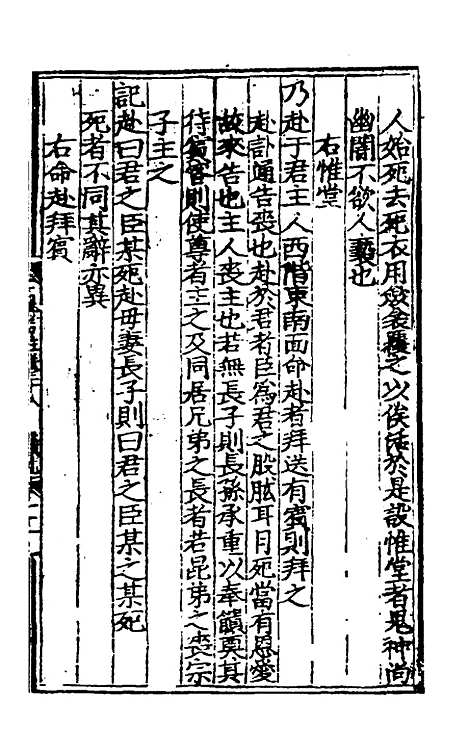 人始死去死衣用斂衾覆之以俟浴於是設帷堂者鬼神尚
幽闇不欲人褻也
右帷堂
乃赴于君主人西階東南面命赴者拜送有賓則拜之
赴訃通告喪也赴於君者臣為君之股肱耳目死當有恩愛
故來告也主人喪主也若無長子則長孫承重以奉饋奠其
待賓客則使尊者主之及同居兄弟之長者若昆弟之喪宗
子主之
記赴曰君之臣某死赴母妻長子則曰君之臣某之某死
死者不同其辭亦異
右命赴拜賓